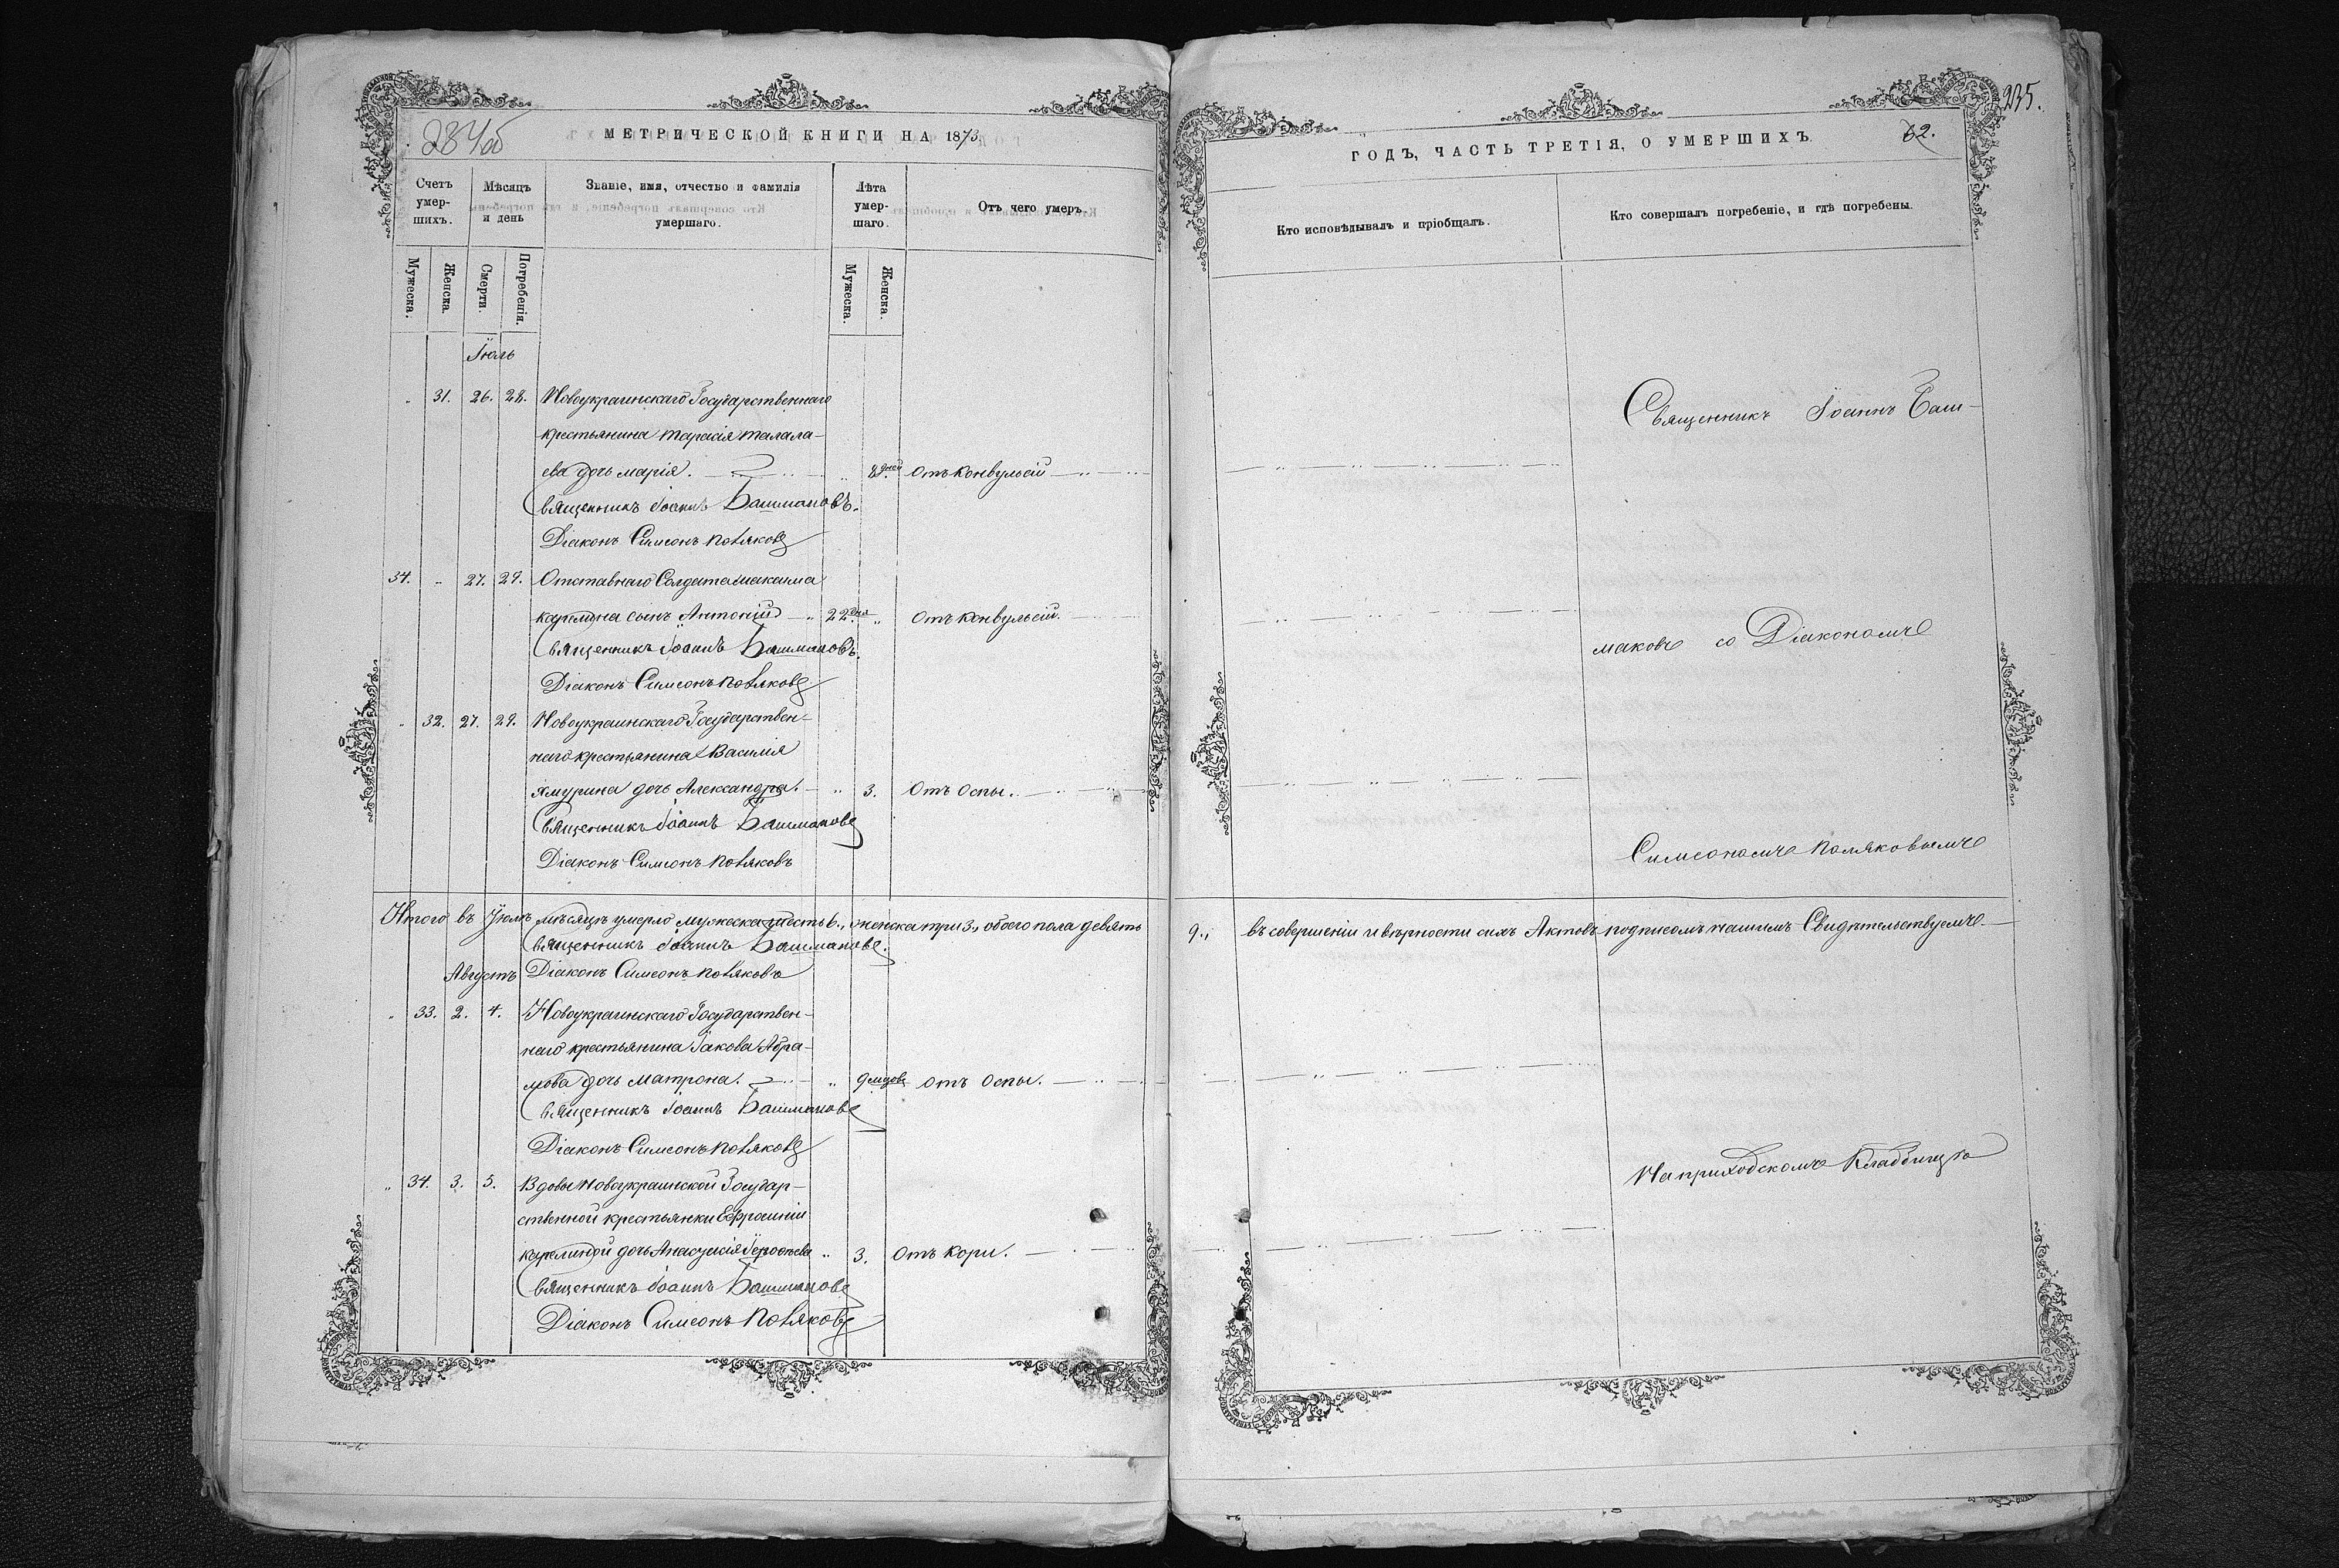 284об
МЕТРИЧЕСКОЙ КНИГИ НА 1873
Счетъ умер-шихъ.
Мѣсяцъ и день
Званіе, имя, отчество и фамилія умершаго.
Лѣта умер-шаго.
Отъ чего умеръ.
Мужеска.
Женска.
Смерти.
Погребенія.
Мужеска.
Женска.
Іюль
31. 26. 28. Новоукраинскаго Государственнаго
крестьянина Тарасія Талала-
ева дочь Марія. 8 дней Отъ конвульсій
Священникъ Іоаннъ Башмаковъ.
Діаконъ Симеонъ Поляковъ
34. „ 27. 29. Отставнаго Солдата Максима
Карелина сынъ Антоній „ 22 дня „ Отъ конвульсій.
Священникъ Іоаннъ Башмаковъ.
Діаконъ Симеонъ Поляковъ
„ 32. 27. 29. Новоукраинскаго Государствен-
наго крестьянина Василія
Ямурина дочь Александра. „ 3. Отъ Оспы.
Священникъ Іоаннъ Башмаковъ
Діаконъ Симеонъ Поляковъ
Итого въ Іюлѣ мѣсяцѣ умерло мужеска шесть 6., женска три 3., обоего пола девять
Священникъ Іоаннъ Башмаковъ.
Августъ Діаконъ Симеонъ Поляковъ
„ 33. 2. 4. Новоукраинскаго Государствен-
наго крестьянина Іакова Абра-
мова дочь Матрона. „ 9 мѣсяцовъ отъ Оспы.
Священникъ Іоаннъ Башмаковъ
Діаконъ Симеонъ Поляковъ
„ 34. 3. 5. Вдовы Новоукраинской Государ-
ственной крестьянки Ефросиніи
Карелиной дочь Анастасія „ 3. Отъ Кори.
Священникъ Іоаннъ Башмаковъ
Діаконъ Симеонъ Поляковъ
235.
62.
ГОДЪ, ЧАСТЬ ТРЕТІЯ, О УМЕРШИХЪ
Кто исповѣдывалъ и пріобщалъ.
Кто совершалъ погребеніе, и гдѣ погребены.
Священникъ Іоаннъ Баш-
маковъ со Діакономъ
Симеономъ Поляковымъ
9., въ совершеніи и вѣрности сихъ Актовъ подписомъ нашимъ Свидѣтельствуемъ.
На приходскомъ Кладбищѣ